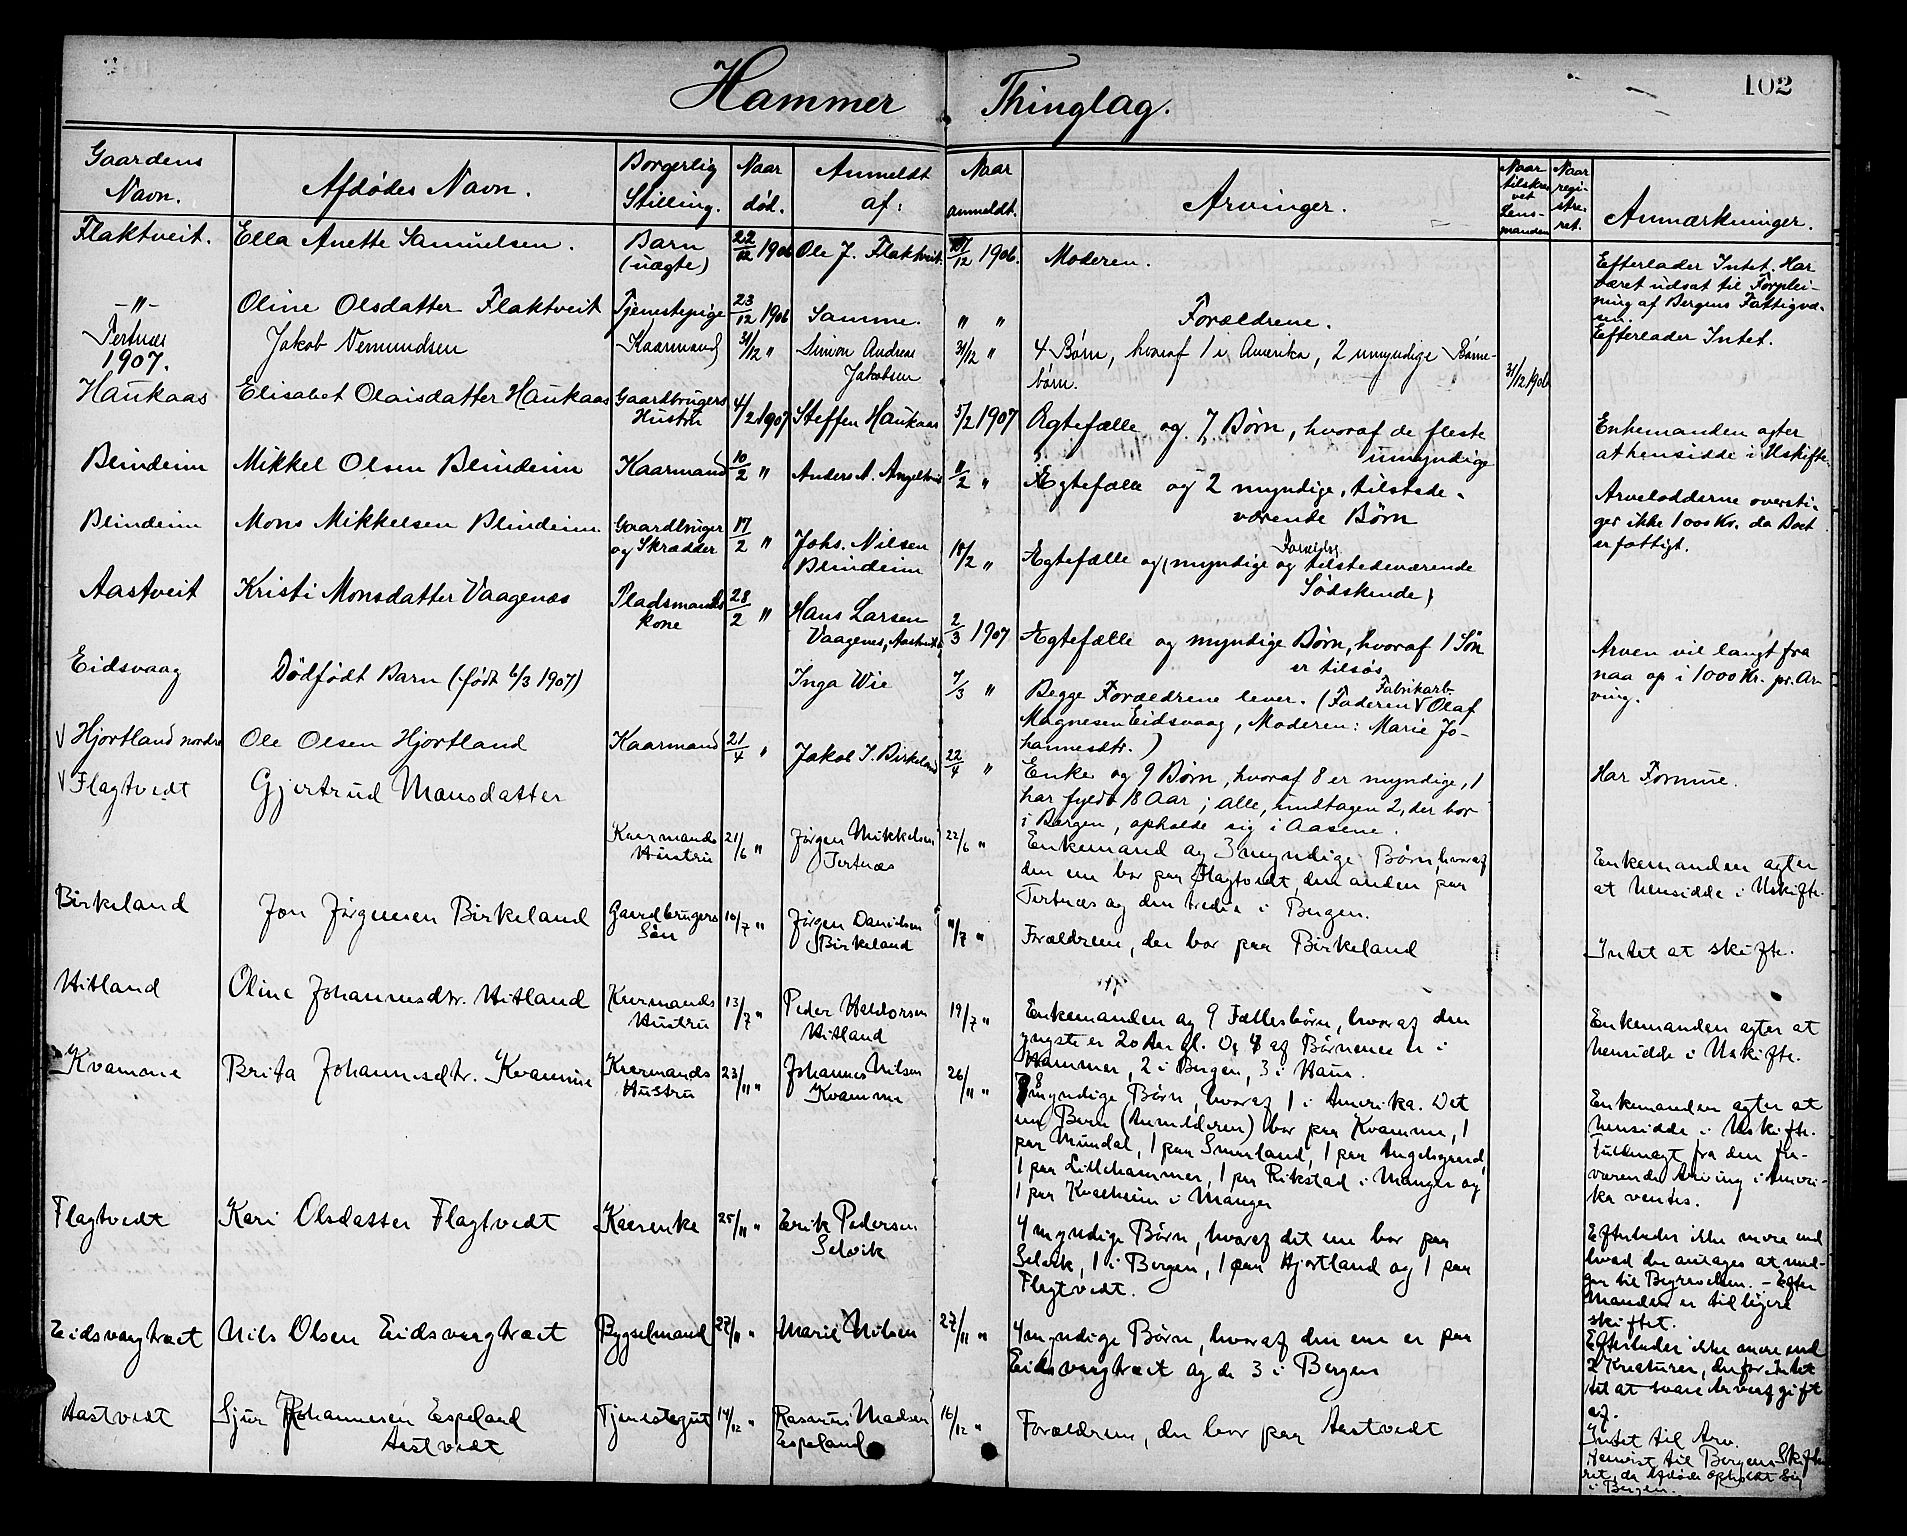 102
Hammer Thinglag.
Gaardens Navn. Afdødes Navn. Borgerlig Stilling. Naar død. Anmeldt af: Naar anmeldt. Arvinger. Naar tilskrevet Lensmanden Naar registreret. Anmærkninger.
Flaktveit. Ella Anette Samuelsen. Barn (uægte) 22/12 1906 Ole J. Flaktveit. 27/12 1906. Moderen. Efterlader Intet. Har
været udsat til Forplei-
ning af Bergens Fattigvæ-
sen.
-"- Oline Olsdatter Flaktveit Tjenestepige 23/12 1906 Samme. " " Forældrene. Efterlader Intet.
Tertnæs Jakob Vemundsen Kaarmand 31/12 " Simon Andreas Jakobsen 31/12 " 4 Børn, hvoraf 1 i Amerika, 2 umyndige Børne-
børn. 31/12 1906
1907.
Haukaas Elisabet Olaisdatter Haukaas Gaardbrugers Hustru 4/2 1907 Steffen Haukaas 5/2 1907 Ægtefælle og 7 Børn, hvoraf de fleste
umyndige Enkemanden agter
at hensidde i Uskifte.
Blindeim Mikkel Olsen Blindeim Kaarmand 10/2 " Anders A. Angeltveit 11/2 " Ægtefælle og 2 myndige, tilstede-
værende Børn Arvelodderne oversti-
ger ikke 1000 Kr. da Boet
er fattigt.
Blindeim Mons Mikkelsen Blindeim Gaardbruger og Skrædder 17/2 " Johs. Nilsen Blindeim 18/2 " Ægtefælle og (myndige og tilstedeværende
Sødskende)
Aastveit Kristi Monsdatter Vaagenæs Pladsmands kone 28/2 " Hans Larsen Vaagenes, Aastveit 2/3 1907 Ægtefælle og myndige Børn, hvoraf 1 Søn
er tilsøs Arven vil langt fra
naa op i 1000 Kr. pr. Ar-
ving.
Eidsvaag Dødfødt Barn (født 6/3 1907) Inga Wie 7/3 " Begge Forældrene lever. (Faderen Fabrikarb. Olaf
Magnesen Eidsvaag, Moderen: Marie Jo-
hannesdtr.)
V Hjortland nordre Ole Olsen Hjortland Kaarmand 21/4 " Jakob I. Birkeland 22/4 " Enke og 9 Børn, hvoraf 8 er myndige, 1
har fyldt 18 Aar; alle, undtagen 2, der bor
i Bergen, opholde sig i Aasene. Har Formue.
V Flagtvedt Gjertrud Monsdatter Kaarmands Hustru 21/6 " Jørgen Mikkelsen Tertnæs 22/6 " Enkemand og 3 myndige Børn, hvoraf
den ene bor paa Flagtvedt, den anden paa
Tertnæs og den tredie i Bergen. Enkemanden agter
at hensidde i Uskifte.
Birkeland Jon Jørgensen Birkeland Gaardbrugers Søn 10/7 " Jørgen Danielsen Birkeland 11/7 " Forældrene, der bor paa Birkeland Intet at skifte.
Hitland Oline Johannesdtr. Hitland Kaarmands Hustru 13/7 " Peder Haldorsen Hitland 19/7 " Enkemanden og 9 Fællesbørn, hvoraf den
yngste er 20 Aar gl. Og 4 af Børnene er i
Hammer, 2 i Bergen, 3 i Haus. Enkemanden agter at
hensidde i Uskifte.
Kvamme Brita Johannesdtr. Kvamme Kaarmands Hustru 23/11 " Johannes Nilsen Kvamme 26/11 " 8 myndige Børn, hvoraf 1 i Amerika. Det
ene Barn (Anmelderen) bor paa Kvamme, 1
paa Mundal, 1 paa Smørland, 1 paa
1 paa Littlehammer, 1 paa Rikstad i Manger og
1 paa Kvalheim i Manger Enkemanden agter at
hensidde i Uskifte.
Fuldmagt fra den fra-
værende Arving i Ameri-
ka ventes.
Flagtvedt Kari Olsdatter Flagtvedt Kaarenke 25/11 " Erik Pedersen Selvik 4 myndige Børn, hvoraf det ene bor paa
Selvik, 1 i Bergen, 1 paa Hjortland og 1 paa
Flagtvedt. Efterlader ikke mere end
hvad der antages at med-
gaa til Begravelsen. - Efter
Manden er tidligere
skiftet.
Eidsvaagtræet Nils Olsen Eidsvaagtræet Bygselmand 27/11 " Marie Nilsen 27/11 " 4 myndige Børn, hvoraf den ene er paa
Eidsvaagtræet og de 3 i Bergen Efterlader ikke mere end
2 Kreaturer, derfor Intet
til at svare Arveafgift
af.
Aastvedt Sjur Johannesen Espeland
Aastvedt Tjenestegut 14/12 " Rasmus Madsen Espeland 16/12 " Forældrene, der bor paa Aastvedt Intet til Arv.
Henvist til Bergens Skifte-
ret, da Afdøde opholdt sig
i Bergen.